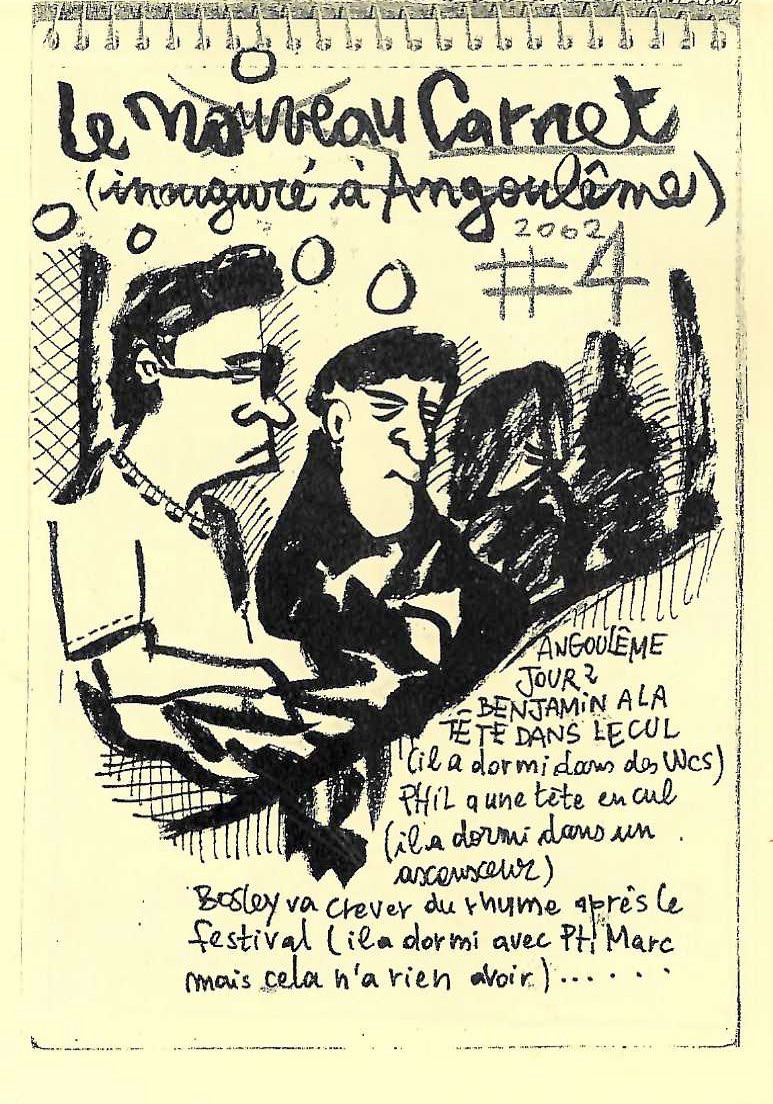 Le nouveau Carnet
(inauguré à Angoulême)
2002
#4
ANGOULÊME
JOUR 2
BENJAMIN A LA
TÊTE DANS LE CUL
(il a dormi dans des Wcs)
PHIL a une tête en cul
(il a dormi dans un
ascenseur)
Bosley va crever du rhume après le
festival (il a dormi avec Pti Marc
mais cela n'a rien avoir)......